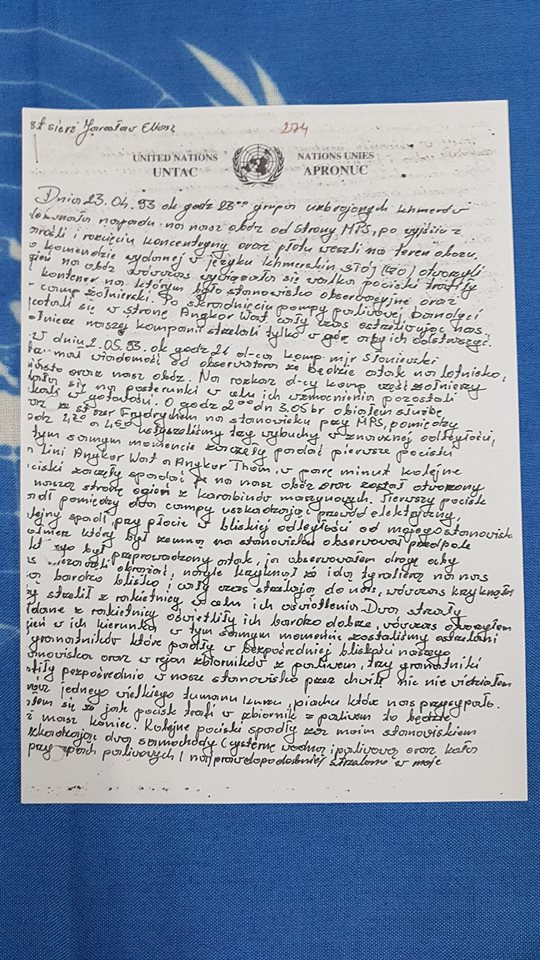 st sierż Jarosław
274
UNITED NATIONS
UNTAC
NATIONS UNIES
APRONUC
Dnia 23.04.93 ok godz 23⁰⁰ grupa uzbrojonych khmerów
napadu na nasz obóz od strony MPS, po wyjściu z
i rozcięciu koncentryny oraz płotu weszli na teren obozu,
komendzie wydanej w języku khmerskim stój otworzyli
ogień na obóz wówczas wywiązała się walka pociski trafiły
kontener na którym było stanowisko obserwacyjne oraz
comp żołnierski. Po skradnięciu pompy paliwowej bandyci
się w stronę Angkor Wat cały czas ostrzeliwując nas,
żołnierze naszej kompanii strzelali tylko w górę aby ich odstraszyć.
W dniu 2.05.93. ok godz 21 d-ca komp. mjr Słoniewski
wiadomość od obserwatora że będzie atak na lotnisko,
miasto oraz nasz obóz. Na rozkaz d-cy komp część żołnierzy
się na posterunki w celu ich wzmocnienia pozostali
w gotowości. O godz 2⁰⁰ dn 3.05 br objąłem służbę
ze st szer Frydrychem na stanowisku przy MPS, pomiędzy
godz 4²⁰ a 4⁵⁰ usłyszeliśmy trzy wybuchy w znacznej odległości,
tym samym momencie zaczęły padać pierwsze pociski
linii Angkor Wat a Angkor Thom, w parę minut kolejne
pociski zaczęły spadać że na nasz obóz oraz został otworzony
naszą stronę ogień z karabinów maszynowych. Pierwszy pocisk
spadł pomiędzy dwa campy uszkadzając przewód elektryczny,
kolejny spadł przy płocie w bliskiej odległości od mojego stanowiska
żołnierz który był zemną na stanowisku obserwował przedpole
był przeprowadzony atak, ja obserwowałem drogę aby
nas niezaczęli okrążać, nagle krzyknął że idą tyralierą na nas
są bardzo blisko i cały czas strzelają do nas, wówczas krzyknąłem
strzelił z rakietnicy w celu ich oświetlenia. Dwa strzały
oddane z rakietnicy oświetliły ich bardzo dobrze, wówczas otworzyłem
ogień w ich kierunku w tym samym momencie zostaliśmy ostrzelani
granatników które padły w bezpośredniej bliskości naszego
stanowiska oraz w rejon zbiorników z paliwem, trzy granatniki
bezpośrednio w nasze stanowisko przez chwilę nic nie widziałem
jednego wielkiego tumanu kurzu, piachu które nas przysypało.
się że jak pocisk trafi w zbiornik z paliwem to będzie
nasz koniec. Kolejne pociski spadły za moim stanowiskiem
uszkadzając dwa samochody (cysternę wodną i paliwową) oraz
przy paliwowych / najprawdopodobniej strzelano w moje